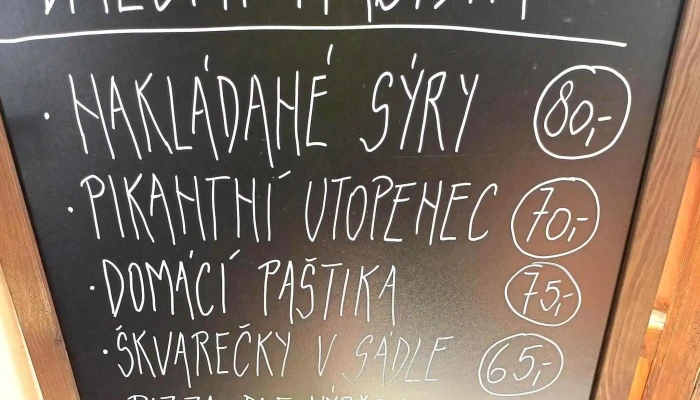 · NAKLÁDANÉ SÝRY 80,-
· PIKANTNÍ UTOPENEC 70,-
· DOMÁCÍ PAŠTIKA 75,-
· ŠKVAREČKY V SÁDLE 65,-
PIZZA DLE